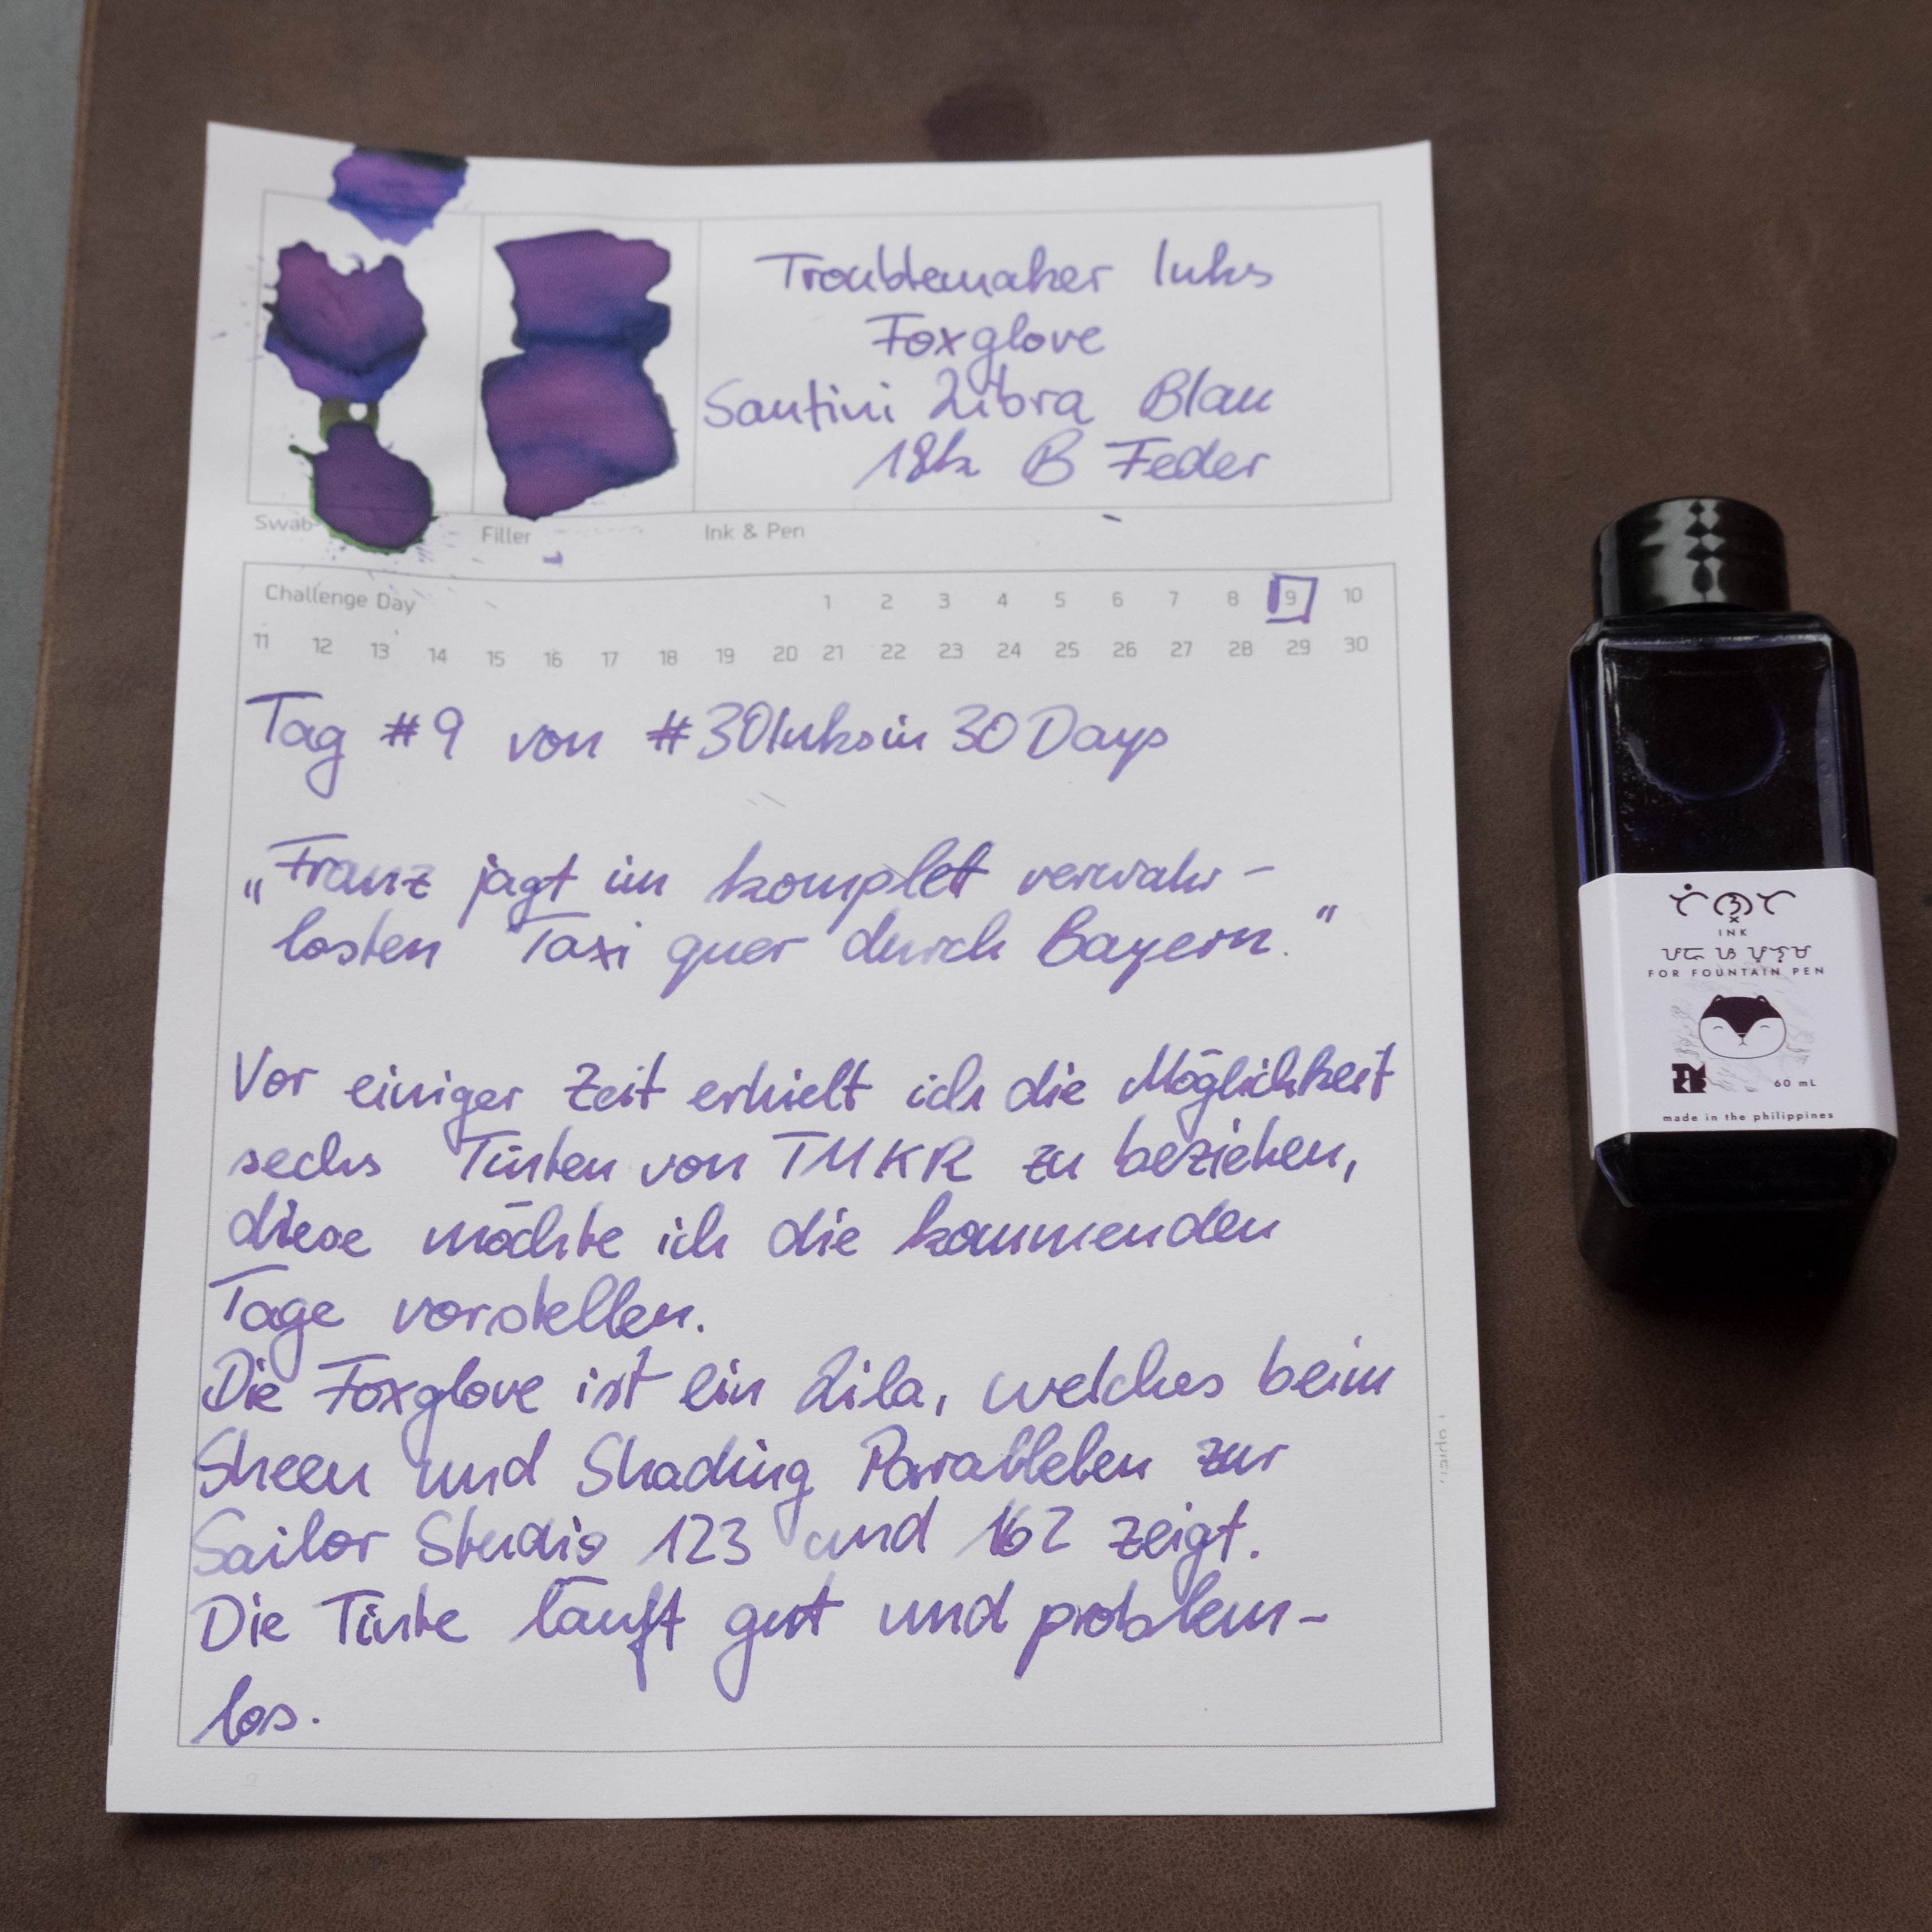 Troublemaker Inks
Foxglove
Santini Libra Blau
18k B Feder
Swab Filler Ink & Pen
Challenge Day 1 2 3 4 5 6 7 8 9 10
11 12 13 14 15 16 17 18 19 20 21 22 23 24 25 26 27 28 29 30
Tag #9 von #30Inksin30Days
„Franz jagt im komplett verwahr-
losten Taxi quer durch Bayern."
Vor einiger Zeit erhielt ich die Möglichkeit
sechs Tinten von TMKR zu beziehen,
diese möchte ich die kommenden
Tage vorstellen.
Die Foxglove ist ein Lila, welches beim
Sheen und Shading Parallelen zur
Sailor Studio 123 und 162 zeigt.
Die Tinte läuft gut und problem-
los.
INK
FOR FOUNTAIN PEN
60 mL
made in the philippines